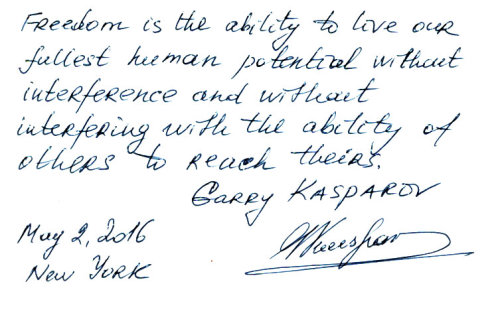 Freedom is the ability to live our
fullest human potential without
interference and without
interfering with the ability of
others to reach theirs.
Garry KASPAROV
May 2, 2016
New York